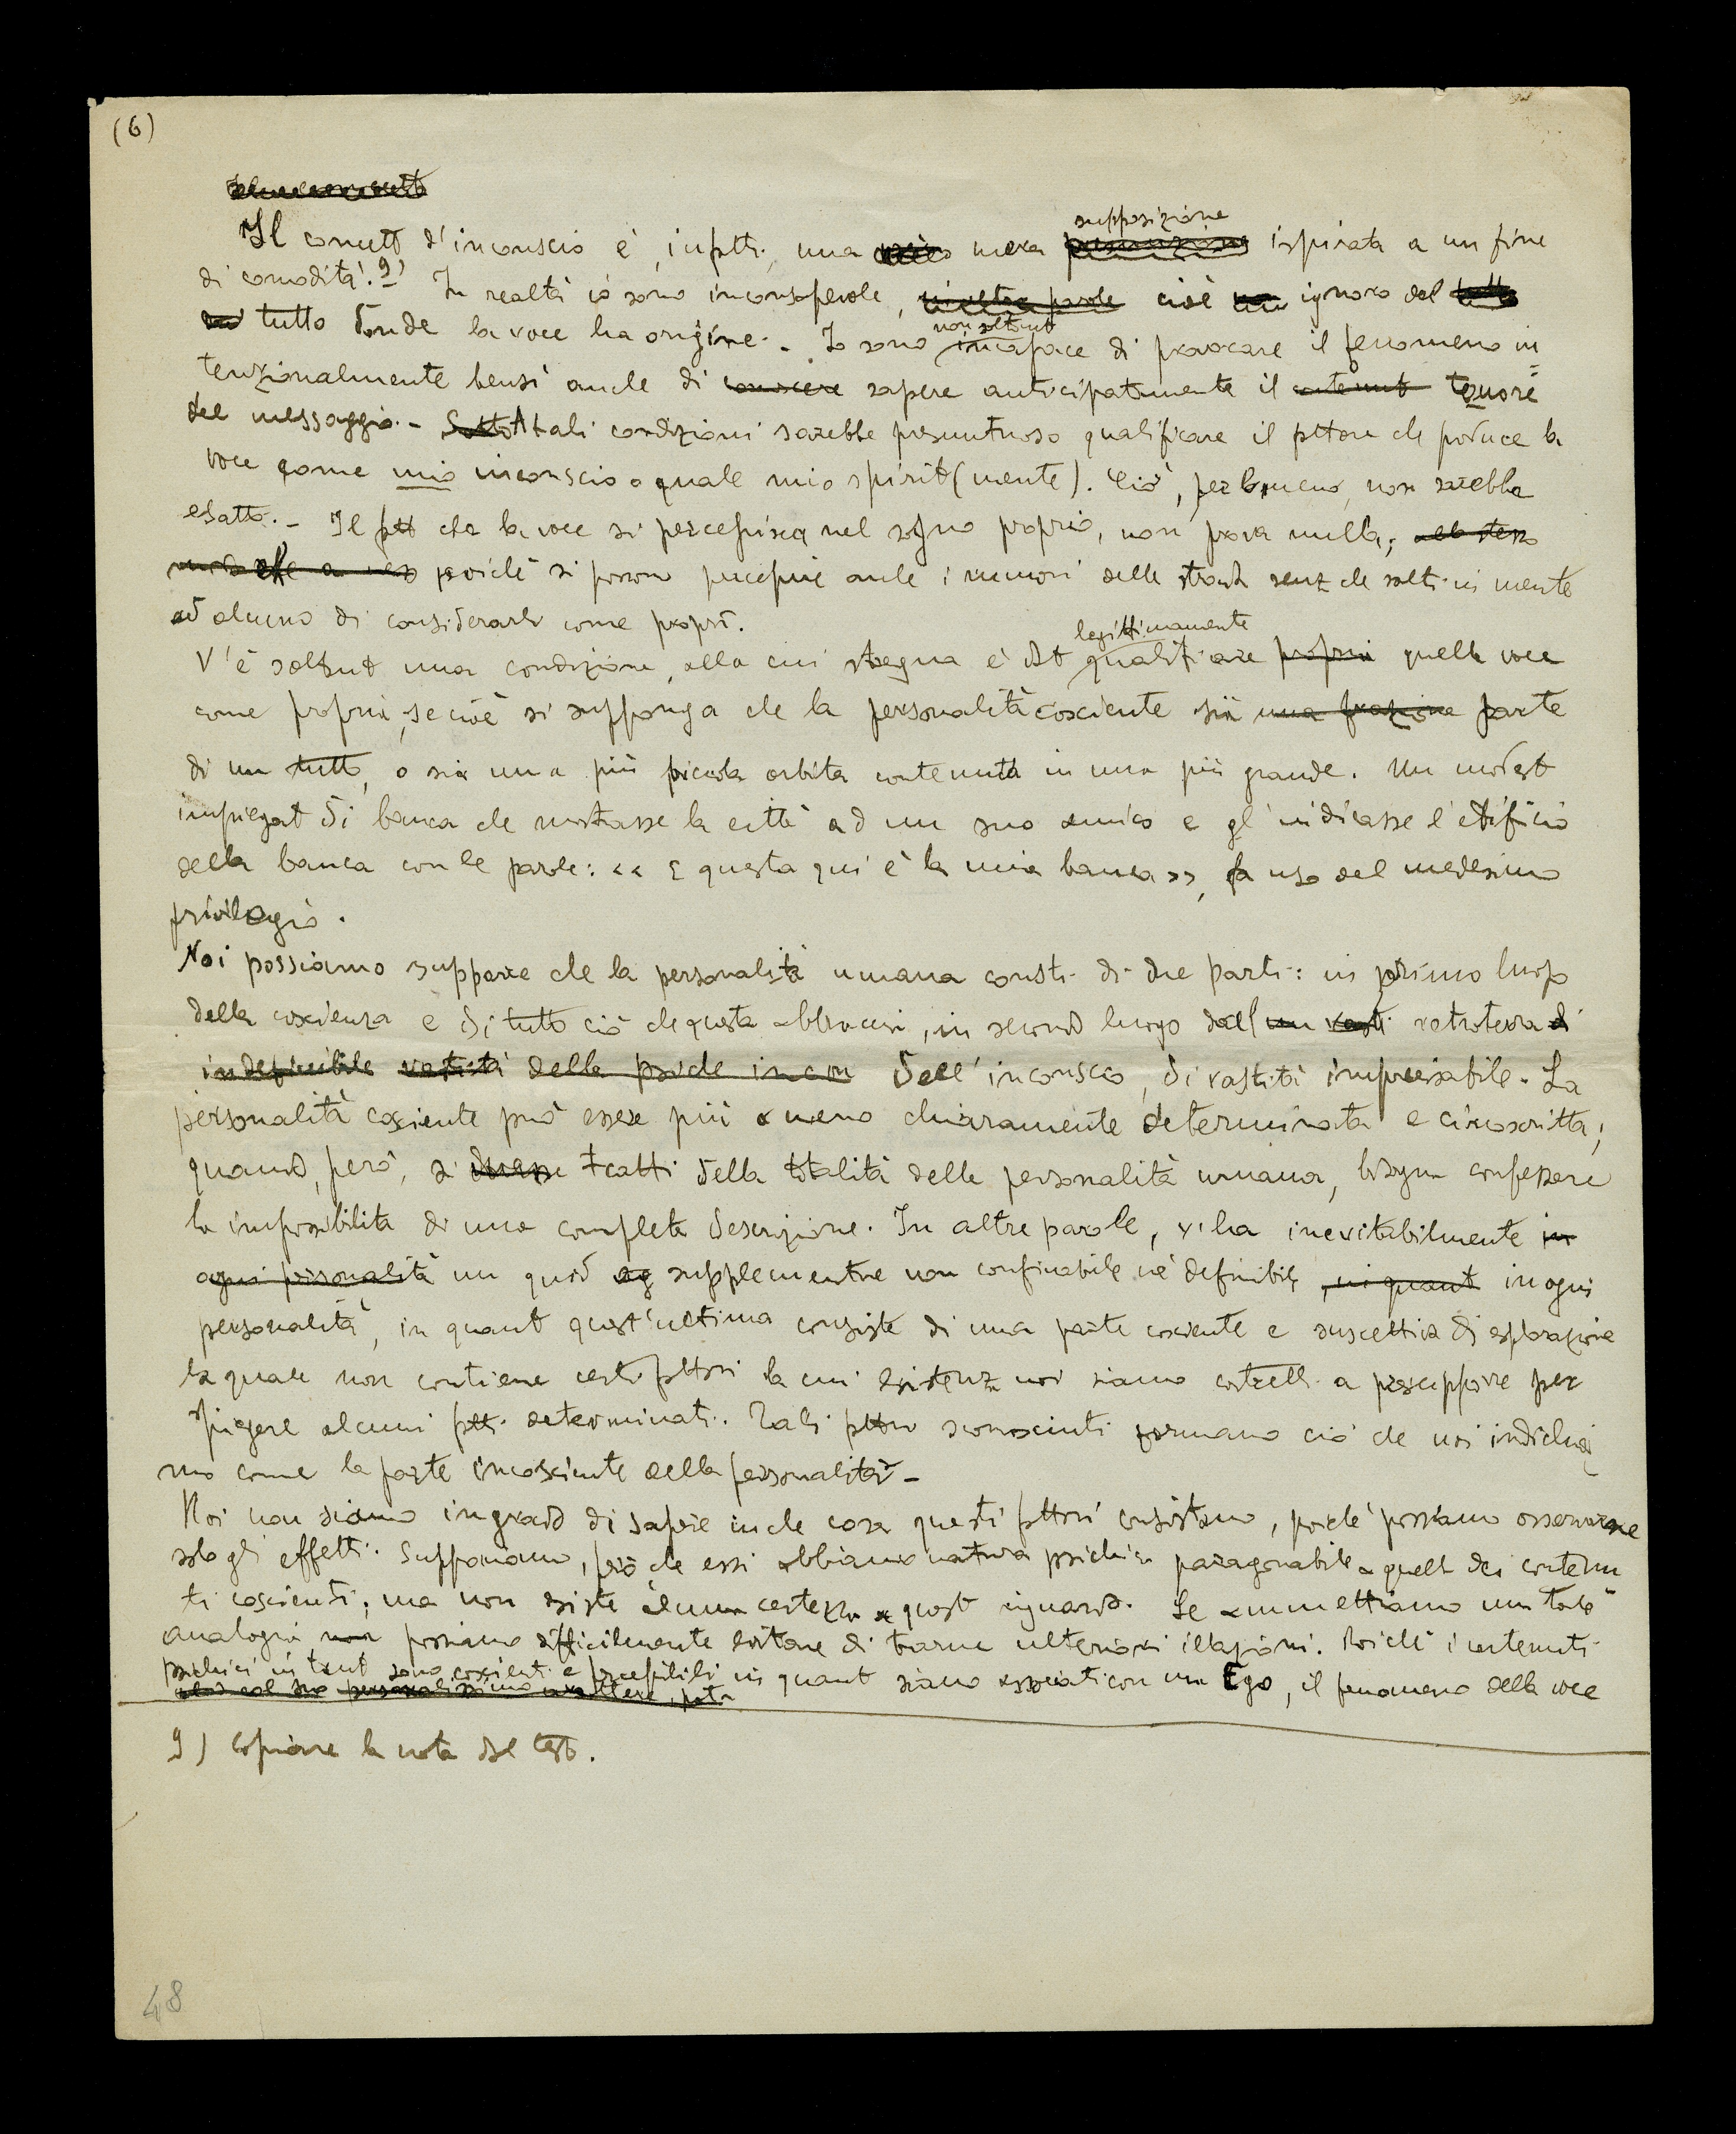 (6)
Il concetto d'inconscio è, infatti, una mera supposizione ispirata a un fine
di comodità. 9) In realtà io sono inconsapevole, in altre parole cioè ignoro del tutto
tutto donde la voce ha origine. - Io sono non soltanto incapace di provocare il fenomeno in
tenzionalmente bensì anche di conoscere sapere anticipatamente il contenuto tenore
del messaggio. - Sotto tali condizioni sarebbe presuntuoso qualificare il fattore che produce la
voce come mio inconscio o quale mio spirito (mente). Ciò, per lo meno, non sarebbe
esatto. - Il fatto che la voce si percepisca nel sogno proprio, non prova nulla; allo stesso
modo che poichè si possono percepire anche i rumori della strada senza che salti in mente
ad alcuno di considerarli come propri.
V'è soltanto una condizione, alla cui stregua è dato legittimamente qualificare propria quella voce
come propria, se cioè si supponga che la personalità cosciente sia una frazione parte
di un tutto, o sia una più piccola orbita contenuta in una più grande. Un modesto
impiegato di banca che mostrasse la città ad un suo amico e gl'indicasse l'edificio
della banca con le parole: << E questa qui è la mia banca >>, fa uso del medesimo
privilegio.
Noi possiamo supporre che la personalità umana consti di due parti: in primo luogo
della coscienza e di tutto ciò che questa abbracci, in secondo luogo dall un vasto retroterra di
indefinibile vastità della psiche incon dell'inconscio, di vastità imprecisabile. La
personalità cosciente può essere più o meno chiaramente determinata e circoscritta;
quando, però, si tratti della totalità della personalità umana, bisogna confessare
la impossibilità di una completa descrizione. In altre parole, v'ha inevitabilmente in
ogni personalità un quid supplementare non confinabile nè definibile, in quanto in ogni
personalità, in quanto quest'ultima consiste di una parte cosciente e suscettiva di esplorazione
la quale non contiene certi fattori la cui esistenza noi siamo costretti a presupporre per
spiegare alcuni fatti determinati. Tali fattori sconosciuti formano ciò che noi indichia
mo come la parte incosciente della personalità -
Noi non siamo in grado di sapere in che cosa questi fattori consistano, poichè possiamo osservarne
solo gli effetti. Supponiamo, però, che essi abbiano natura psichica paragonabile a quella dei contenu
ti coscienti; ma non esiste alcuna certezza a questo riguardo. Se ammettiamo una tale
analogia non possiamo difficilmente evitare di trarne ulteriori illazioni. Poichè i contenuti
psichici in tanto sono coscienti e percepibili in quanto siano associati con un Ego, il fenomeno della voce
col suo personalissimo carattere, potr
9) Copiare la nota del testo.
48